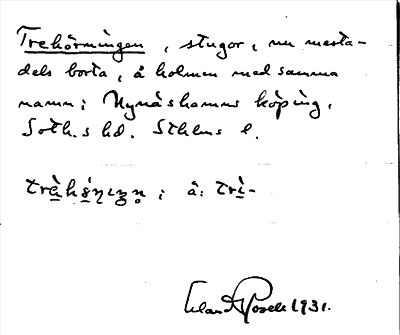 Trehörningen, stugor, nu mesta-
dels borta, å holmen med samma
namn i Nynäshamns köping,
Soth.s hd. Sthlms l.
Erland Rosell 1931.